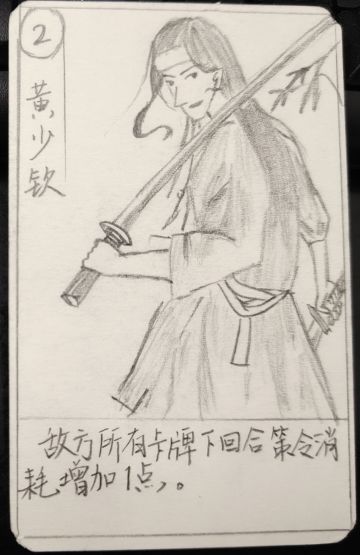 2
黄少钦
敌方所有卡牌下回合策令消
耗增加1点,。